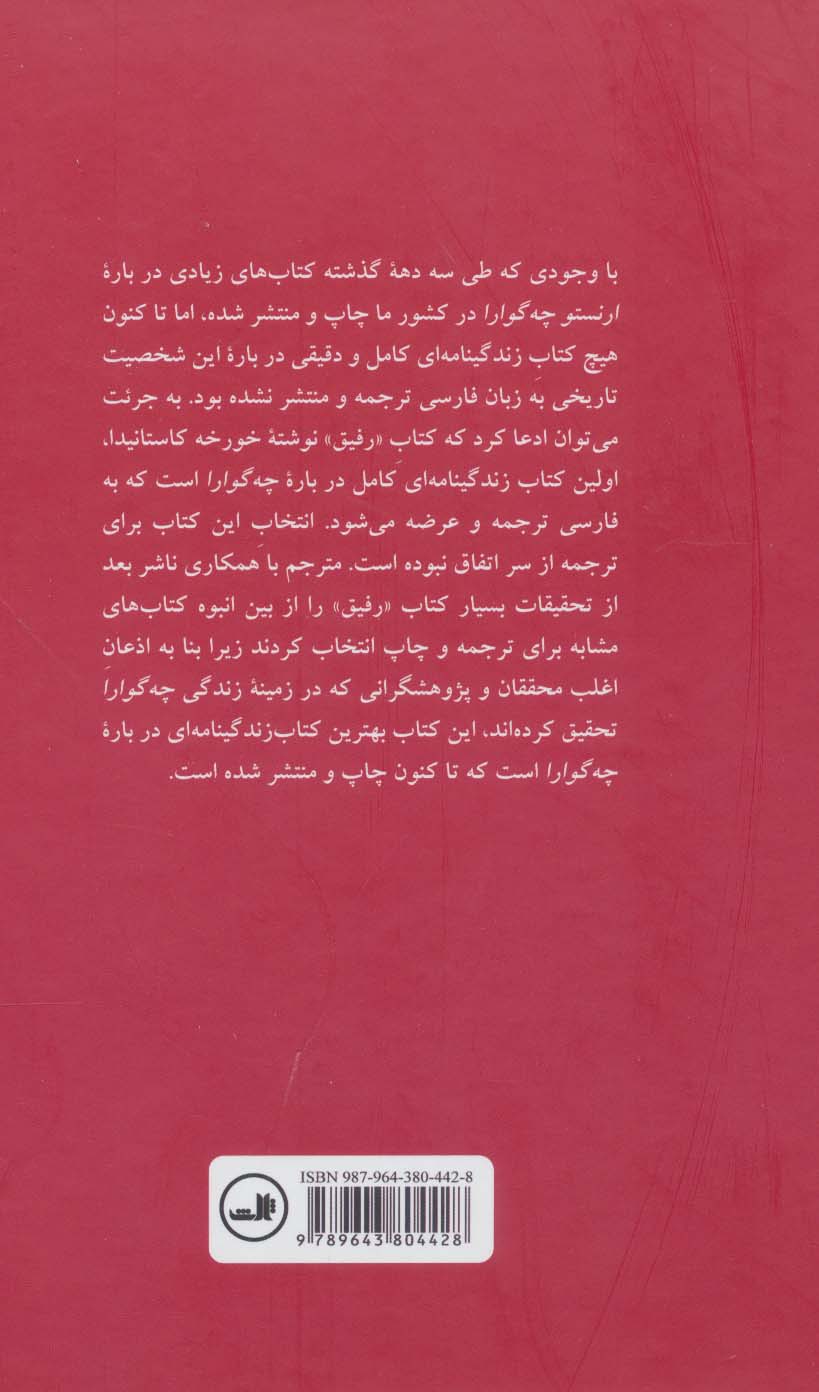 با وجودی که طی سه دههٔ گذشته کتاب‌های زیادی در بارهٔ
ارنستو چه‌گوارا در کشور ما چاپ و منتشر شده، اما تا کنون
هیچ کتابِ زندگینامه‌ای کامل و دقیقی در بارهٔ این شخصیت
تاریخی به زبان فارسی ترجمه و منتشر نشده بود. به جرئت
می‌توان ادعا کرد که کتابِ «رفیق» نوشتهٔ خورخه کاستانیدا،
اولین کتاب زندگینامه‌ای کامل در بارهٔ چه‌گوارا است که به
فارسی ترجمه و عرضه می‌شود. انتخابِ این کتاب برای
ترجمه از سر اتفاق نبوده است. مترجم با همکاری ناشر بعد
از تحقیقات بسیار کتاب «رفیق» را از بین انبوه کتاب‌های
مشابه برای ترجمه و چاپ انتخاب کردند زیرا بنا به اذعانِ
اغلب محققان و پژوهشگرانی که در زمینهٔ زندگی چه‌گوارا
تحقیق کرده‌اند، این کتاب بهترین کتاب‌زندگینامه‌ای در بارهٔ
چه‌گوارا است که تا کنون چاپ و منتشر شده است.
ISBN 987-964-380-442-8
ثالث
9 789643 804428